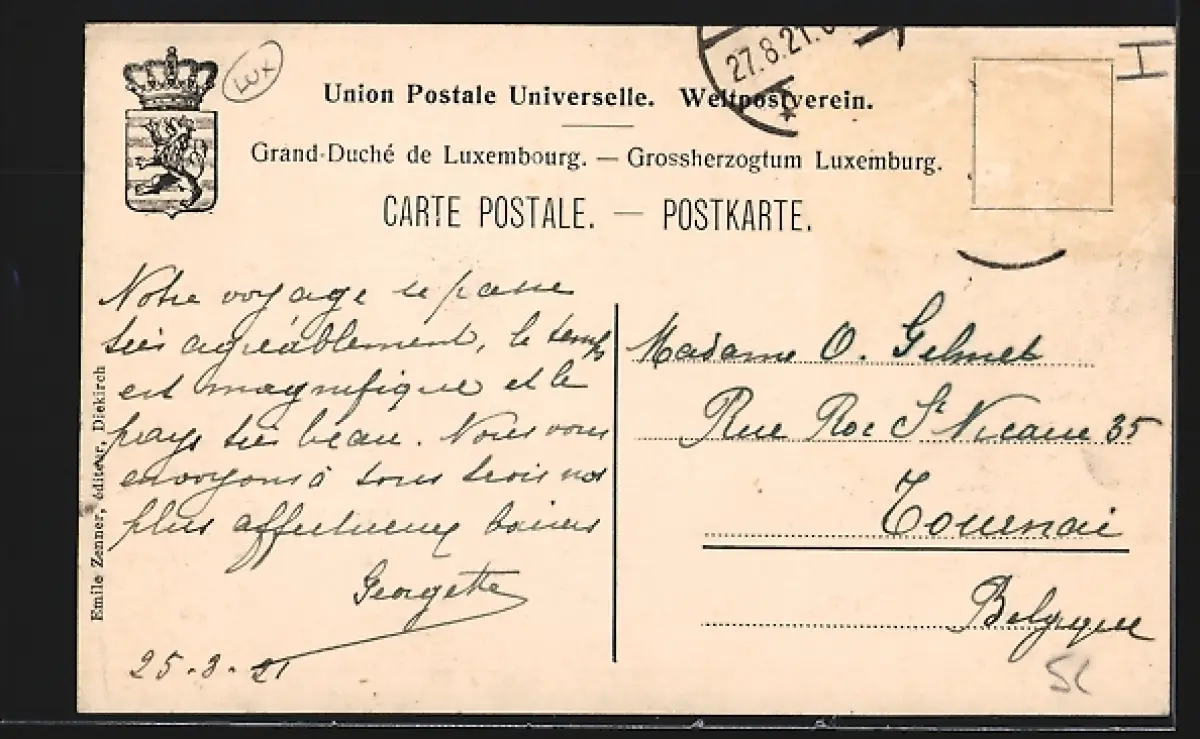 LUX
27.8.21.
Union Postale Universelle. Weltpostverein.
Grand-Duché de Luxembourg. — Grossherzogtum Luxemburg.
CARTE POSTALE. — POSTKARTE.
Notre voyage se passe
très agréablement, le temps
est magnifique et le
pays très beau. Nous vous
envoyons à tous trois nos
plus affectueux baisers
Georgette
25-8-21
Emile Zenner, éditeur, Diekirch
Madame O. Gelmet
Rue Roc St Nicaise 35
Tournai
Belgique